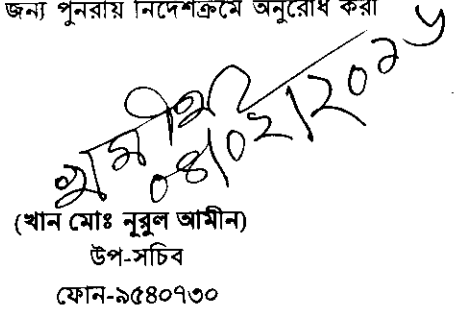 জন্য পুনরায় নির্দেশক্রমে অনুরোধ করা
০৪/০২/২০১৬
(খান মোঃ নূরুল আমীন)
উপ-সচিব
ফোন-৯৫৪০৭৩০